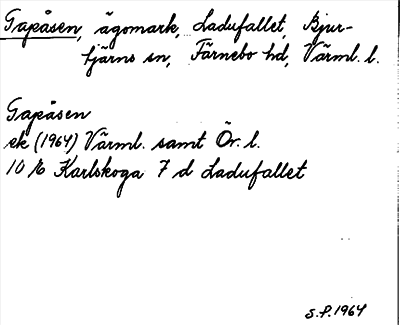 Gapåsen, ägomark, Ladufallet, Bjur-
tjärns sn, Färnebo hd, Värml. l.
Gapåsen
ek (1964) Värml. samt Ör. l.
10 E Karlskoga 7 d Ladufallet
S.P. 1964